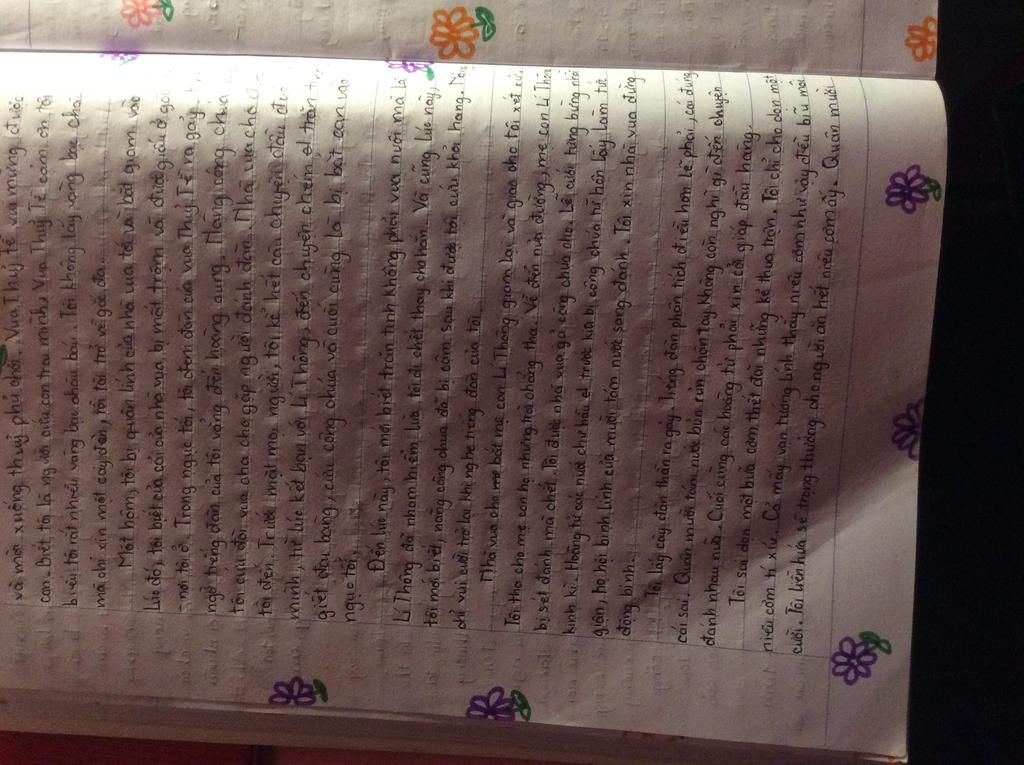 và mời xuống thuỷ phủ chơi. Vua Thuỷ tề vui mừng được
con. Biết tôi là ng với cứu con trai mình. Vua Thuỷ Tề cảm ơn tôi
biếu tôi rất nhiều vàng bạc châu báu. Tôi không lấy vàng bạc châu
mà chỉ xin một cây đàn, rồi tôi trở về gốc đa.
Một hôm, tôi bị quân lính của nhà vua tới và bắt giam vào
Lúc đó, tôi biết của cải của nhà vua bị mất trộm và được giấu ở gốc
nơi tôi ở. Trong ngục tối, tôi đem đàn của vua Thuỷ Tề ra gảy.
ngờ tiếng đàn của tôi vẳng đến hoàng cung. Nàng công chúa
tôi cứu đòi vua cha cho gặp người đánh đàn. Nhà vua cho
tôi đến. Trước mặt mọi người, tôi kể hết câu chuyện đầu đuôi
mình, từ lúc kết bạn với Lí Thông, đến chuyện chém chằn tinh
giết đại bàng, cứu công chúa và cuối cùng là bị bắt oan vào
ngục tối.
Đến lúc này, tôi mới biết trăn tinh không phải vua nuôi mà là
Lí Thông đã nhẫn tâm lừa tôi đi chết thay cho hắn. Và cũng lúc này,
tôi mới biết, nàng công chúa đã bị câm sau khi được tôi cứu khỏi hang.
chỉ vui cười trở lại khi nghe tiếng đàn của tôi.
Nhà vua cho bắt mẹ con Lí Thông giam lại và giao cho tôi xét xử.
Tôi tha cho mẹ con họ nhưng trời chẳng tha. Về đến nửa đường, mẹ con Lí Thông
bị sét đánh mà chết. Tôi được nhà vua gả công chúa cho. Lễ cưới tưng bừng nhất
kinh kì. Hoàng tử các nước chư hầu đi trước kia bị công chúa từ hôn lấy làm tức
giận, họ hội binh lính của mười tám nước sang đánh. Tôi xin nhà vua đừng
động binh.
Tôi lấy cây đàn thần ra gảy, tiếng đàn phân tích điều hơn lẽ phải, cái đúng
cái sai. Quân mười tám nước bủn rủn chân tay không còn nghĩ gì đến chuyện
đánh nhau nữa. Cuối cùng các hoàng tử phải xin cởi giáp đầu hàng.
Tôi sai dọn một bữa cơm thết đãi những kẻ thua trận. Tôi chỉ cho dọn một
niêu cơm tí xíu. Cả mấy vạn tướng lĩnh thấy niêu cơm như vậy đều bĩu môi
cười. Tôi liền hứa sẽ trọng thưởng cho người ăn hết niêu cơm ấy. Quân mười